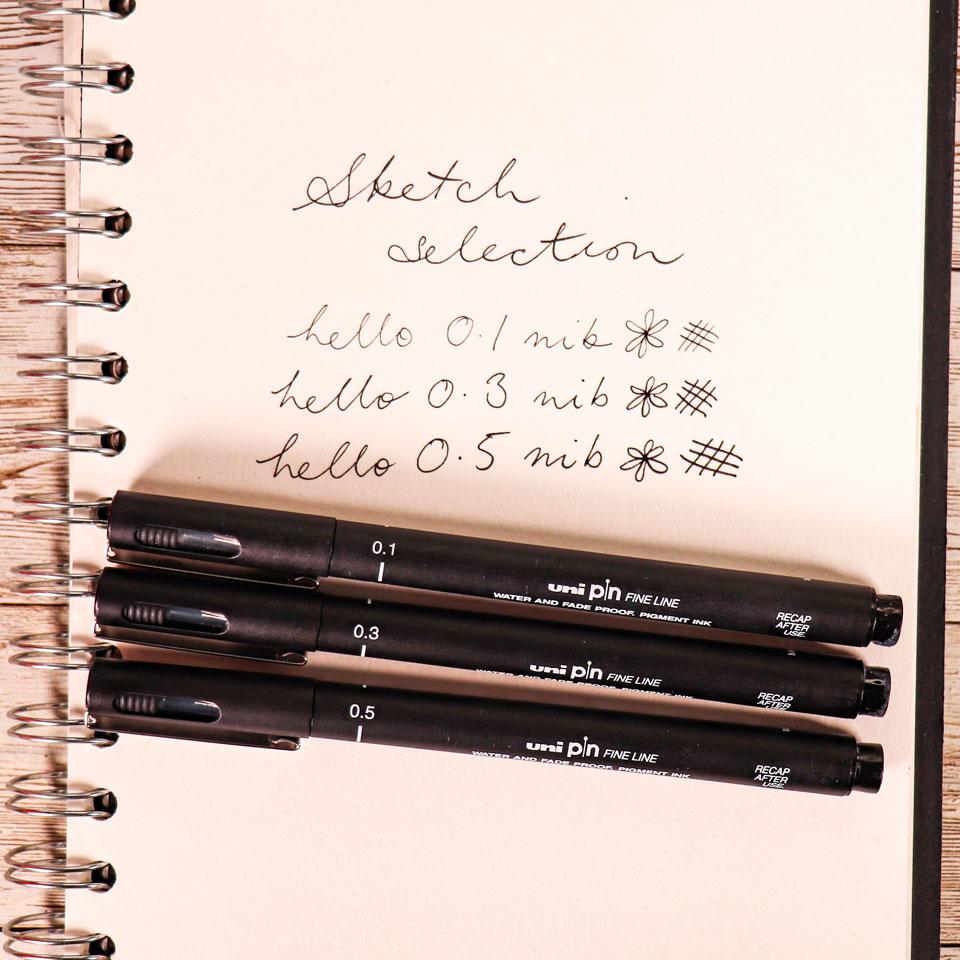 Sketch
selection
hello 0.1 nib
hello 0.3 nib
hello 0.5 nib
0.1
uni pin FINE LINE
WATER AND FADE PROOF, PIGMENT INK
RECAP
AFTER
USE.
0.3
uni pin FINE LINE
WATER AND FADE PROOF, PIGMENT INK
RECAP
AFTER
USE.
0.5
uni pin FINE LINE
WATER AND FADE PROOF, PIGMENT INK
RECAP
AFTER
USE.